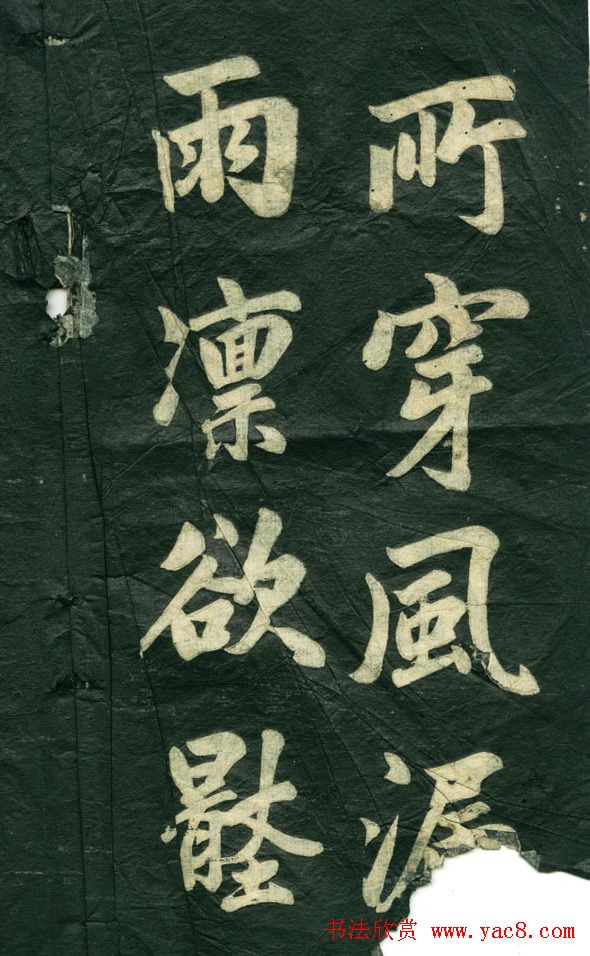 所穿風
雨凛欲
书法欣赏 www.yac8.com